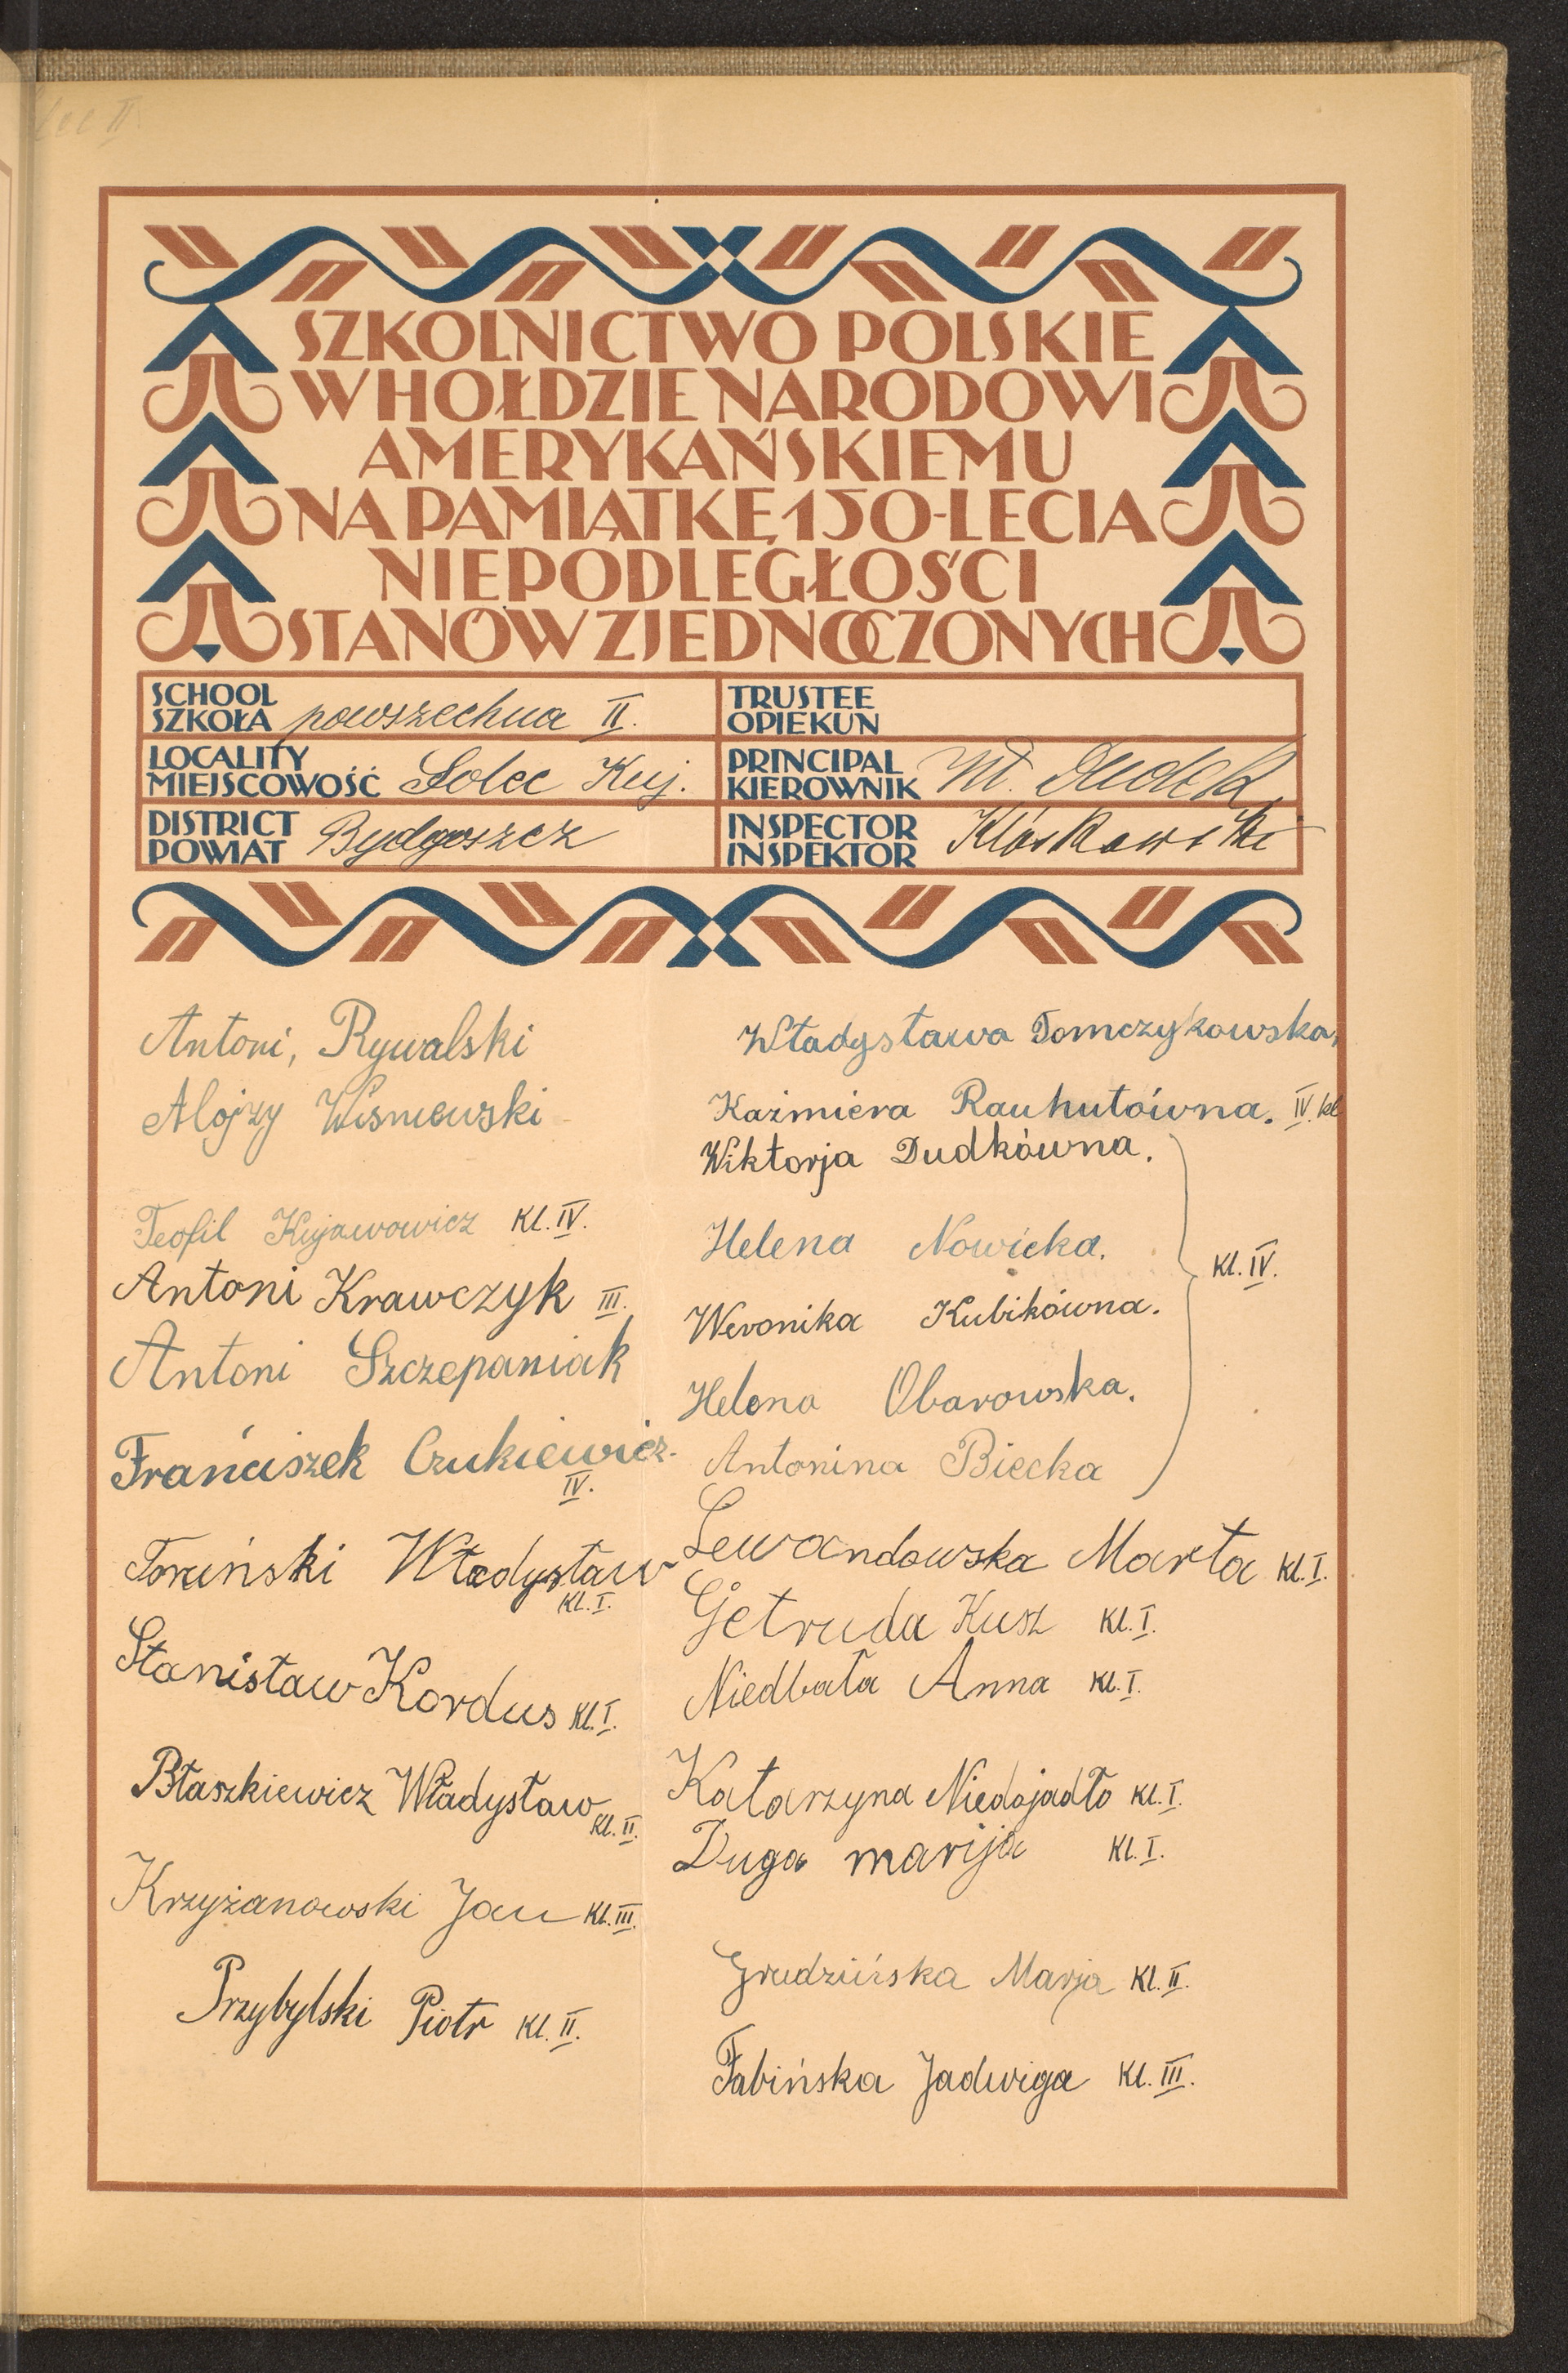 SZKOLNICTWO POLSKIE
W HOŁDZIE NARODOWI
AMERYKAŃSKIEMU
NA PAMIĄTKĘ 150-LECIA
NIEPODLEGŁOŚCI
STANÓW ZJEDNOCZONYCH
SCHOOL
SZKOŁA powszechna II.
TRUSTEE
OPIEKUN
LOCALITY
MIEJSCOWOŚĆ Solec Kuj.
PRINCIPAL
KIEROWNIK Wł. Dudek
DISTRICT
POWIAT Bydgoszcz
INSPECTOR
INSPEKTOR Kłoskowski
Antoni, Rywalski
Alojzy Wisniewski
Teofil Kujawowicz Kl. IV.
Antoni Krawczyk III.
Antoni Szczepaniak
Franciszek Czukiewicz.
IV.
Toruński Władysław
Kl. I.
Stanisław Kordus Kl. I.
Błaszkiewicz Władysław
Kl. II.
Krzyżanowski Jan Kl. III.
Przybylski Piotr Kl. II.
Władysława Tomczykowska,
Kaźmiera Rauhutówna. IV. kl
Wiktorja Dudkówna.
Helena Nowicka.
Kl. IV.
Weronika Kubikówna.
Helena Obarowska.
Antonina Biecka
Lewandowska Marta Kl. I.
Getruda Kusz Kl. I.
Niedbała Anna Kl. I.
Katarzyna Niedojadło Kl. I.
Duga marija Kl. I.
Grudzińska Marja Kl. II.
Fabińska Jadwiga Kl. III.